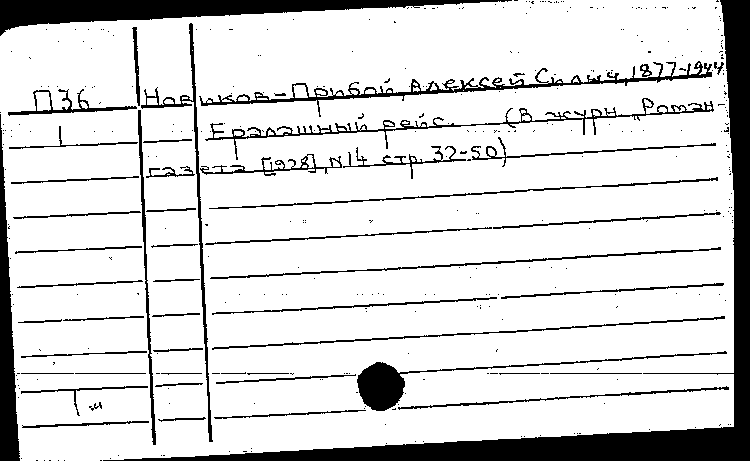 П36 Новиков-Прибой, Алексей Силыч, 1877-1944
1 Ералашный рейс. (В журн. „Роман-
газета [1928], N14 стр. 32-50)